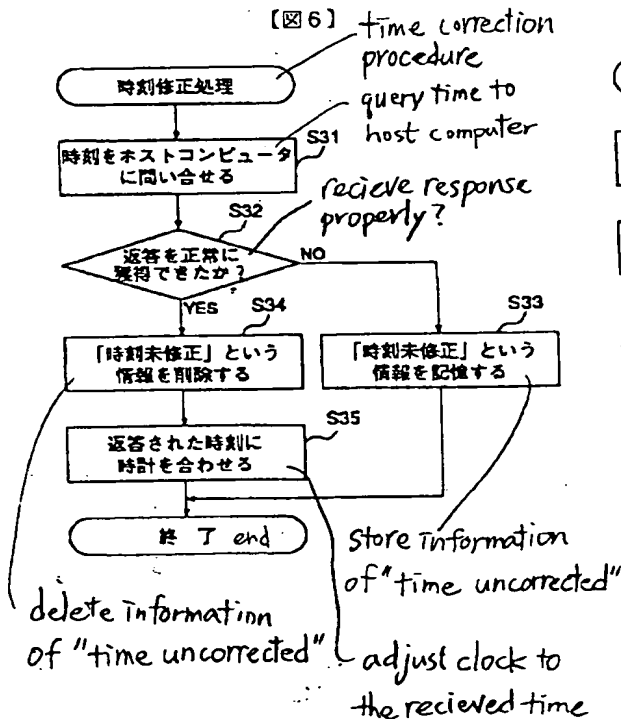 【図6】
time correction
procedure
時刻修正処理
query time to
host computer
S31
時刻をホストコンピュータ
に問い合せる
recieve response
properly?
S32
返答を正常に
獲得できたか?
NO
YES
S34
S33
「時刻未修正」という
情報を削除する
「時刻未修正」という
情報を記憶する
S35
返答された時刻に
時計を合わせる
終了 end
store information
of "time uncorrected"
delete information
of "time uncorrected"
adjust clock to
the recieved time